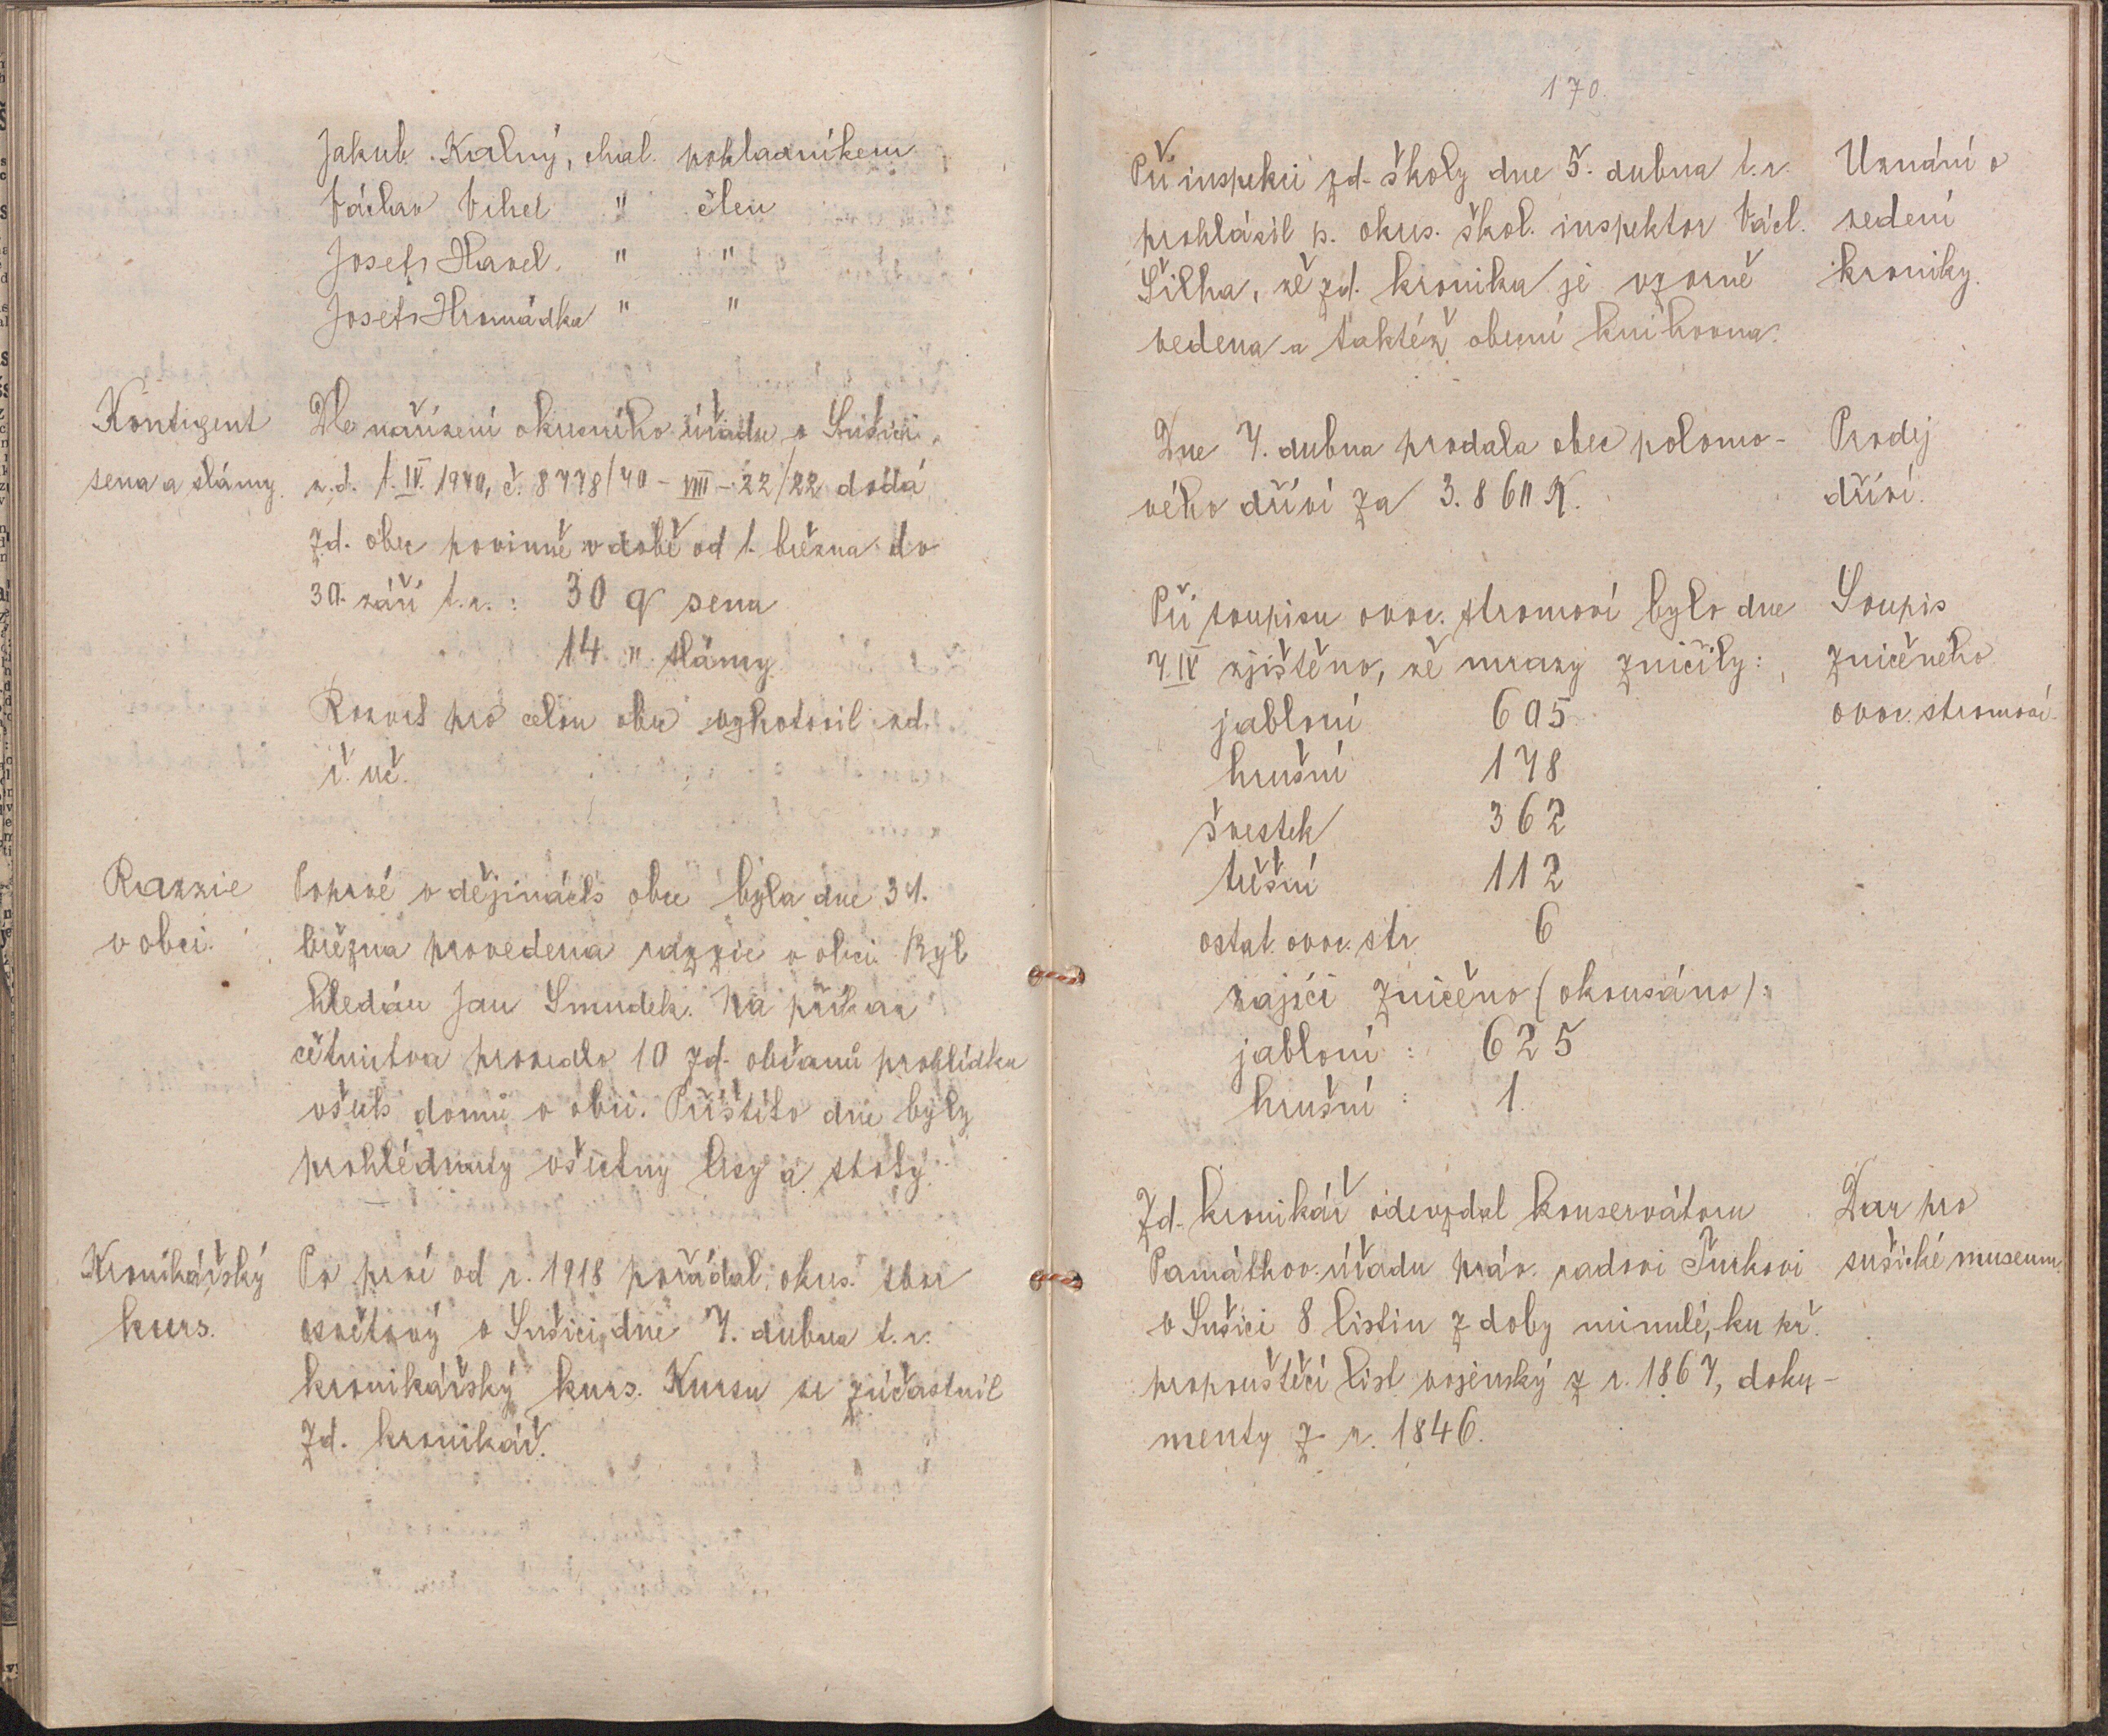 Jakub Kalný, chal. pokladníkem
Václav Vihel " člen
Josef Havel. " "
Josef Hromádka " "
Kontigent
sena a slámy.
Dle nařízení okresního úřadu v Sušici
z. d. 1. IV. 1940, č. 8778/40 - VIII - 22/22 dodá
zd. obec povinně v době od 1. března do
30. září t. r. : 30 q sena
14 " slámy
Rozvrh pro celou obec vyhotovil zd.
ř. uč.
Razzie
v obci.
Poprvé v dějinách obce byla dne 31.
března provedena razzie v obci. Byl
hledán Jan Smudek. Na příkaz
četnictva provedlo 10 zd. občanů prohlídku
všech domů v obci. Příštího dne byly
prohlédnuty všechny lesy a stohy.
Kronikářský
kurs.
Po prvé od r. 1918 pořádal okres. sbor
osvětový v Sušici dne 7. dubna t. r.
kronikářský kurs. Kursu se zúčastnil
zd. kronikář.
170.
Při inspekci zd. školy dne 5. dubna t. r.
prohlásil p. okres. škol. inspektor Václ.
Šilha, že zd. kronika je vzorně
vedena a taktéž obecní knihovna.
Uznání o
vedení
kroniky.
Dne 7. dubna prodala obec polomo-
vého dříví za 3.860 K.
Prodej
dříví.
Při soupisu ovoc. stromoví bylo dne
7. IV zjištěno, že mrazy zničily :
jabloní 605
hrušní 178
švestek 362
třešní 112
ostat. ovoc. str. 6
zajíci zničeno (okousáno) :
jabloní : 625
hrušní : 1.
Soupis
zničeného
ovoc. stromoví.
Zd. kronikář odevzdal konservátoru
Památkov. úřadu práv. radovi Turkovi
v Sušici 8 listin z doby minulé, ku př.
propouštěcí list vojenský z r. 1867, doku-
menty z r. 1846.
Dar pro
sušické museum.